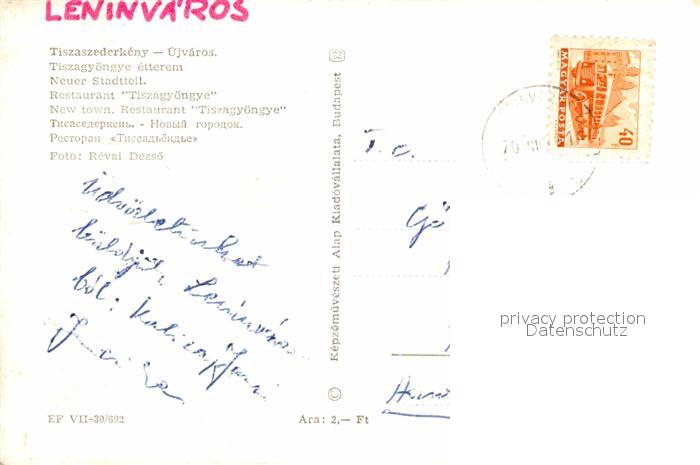 LENINVÁROS
Tiszaszederkény — Újváros.
Tiszagyöngye étterem
Neuer Stadtteil.
Restaurant "Tiszagyöngye"
New town. Restaurant "Tiszagyöngye"
Тисаседеркень. - Новый городок.
Ресторан «Тиссадьёндье»
Foto: Révai Dezső
Üdvözletünket
küldjük Leninváros
ból:
EF VII-30/692
Ára: 2,— Ft
© Képzőművészeti Alap Kiadóvállalata, Budapest
MAGYAR POSTA
40f
70 VIII
T. c.
Gö
privacy protection
Datenschutz